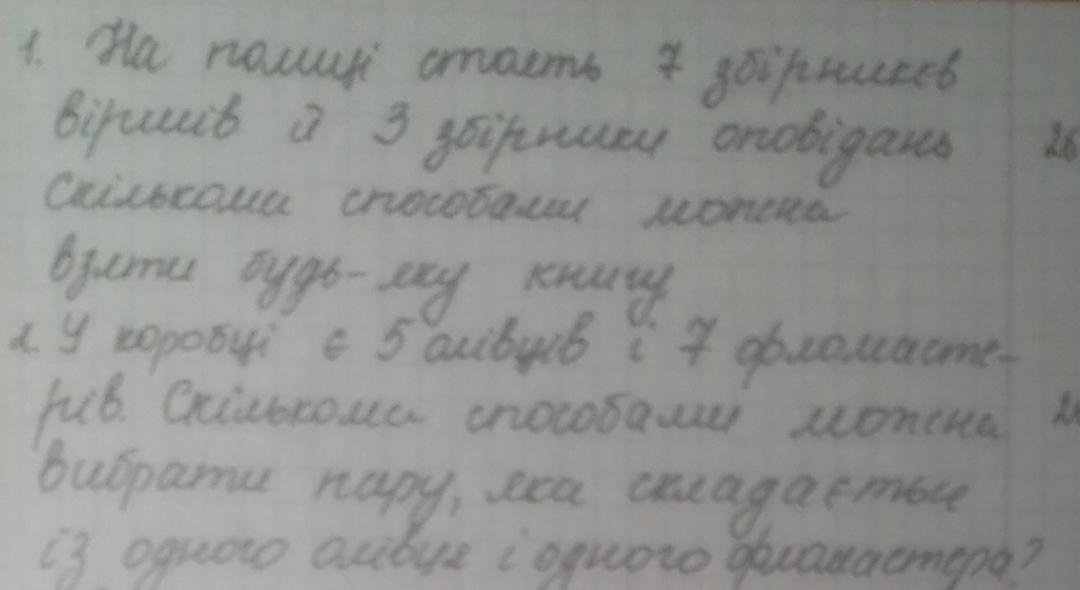 1. На полиці стоять 7 збірників
віршів й 3 збірники оповідань
Скількома способами можна
взяти будь-яку книгу
2. У коробці є 5 олівців і 7 фломасте-
рів. Скількома способами можна
вибрати пару, яка складається
із одного олівця і одного фломастера?